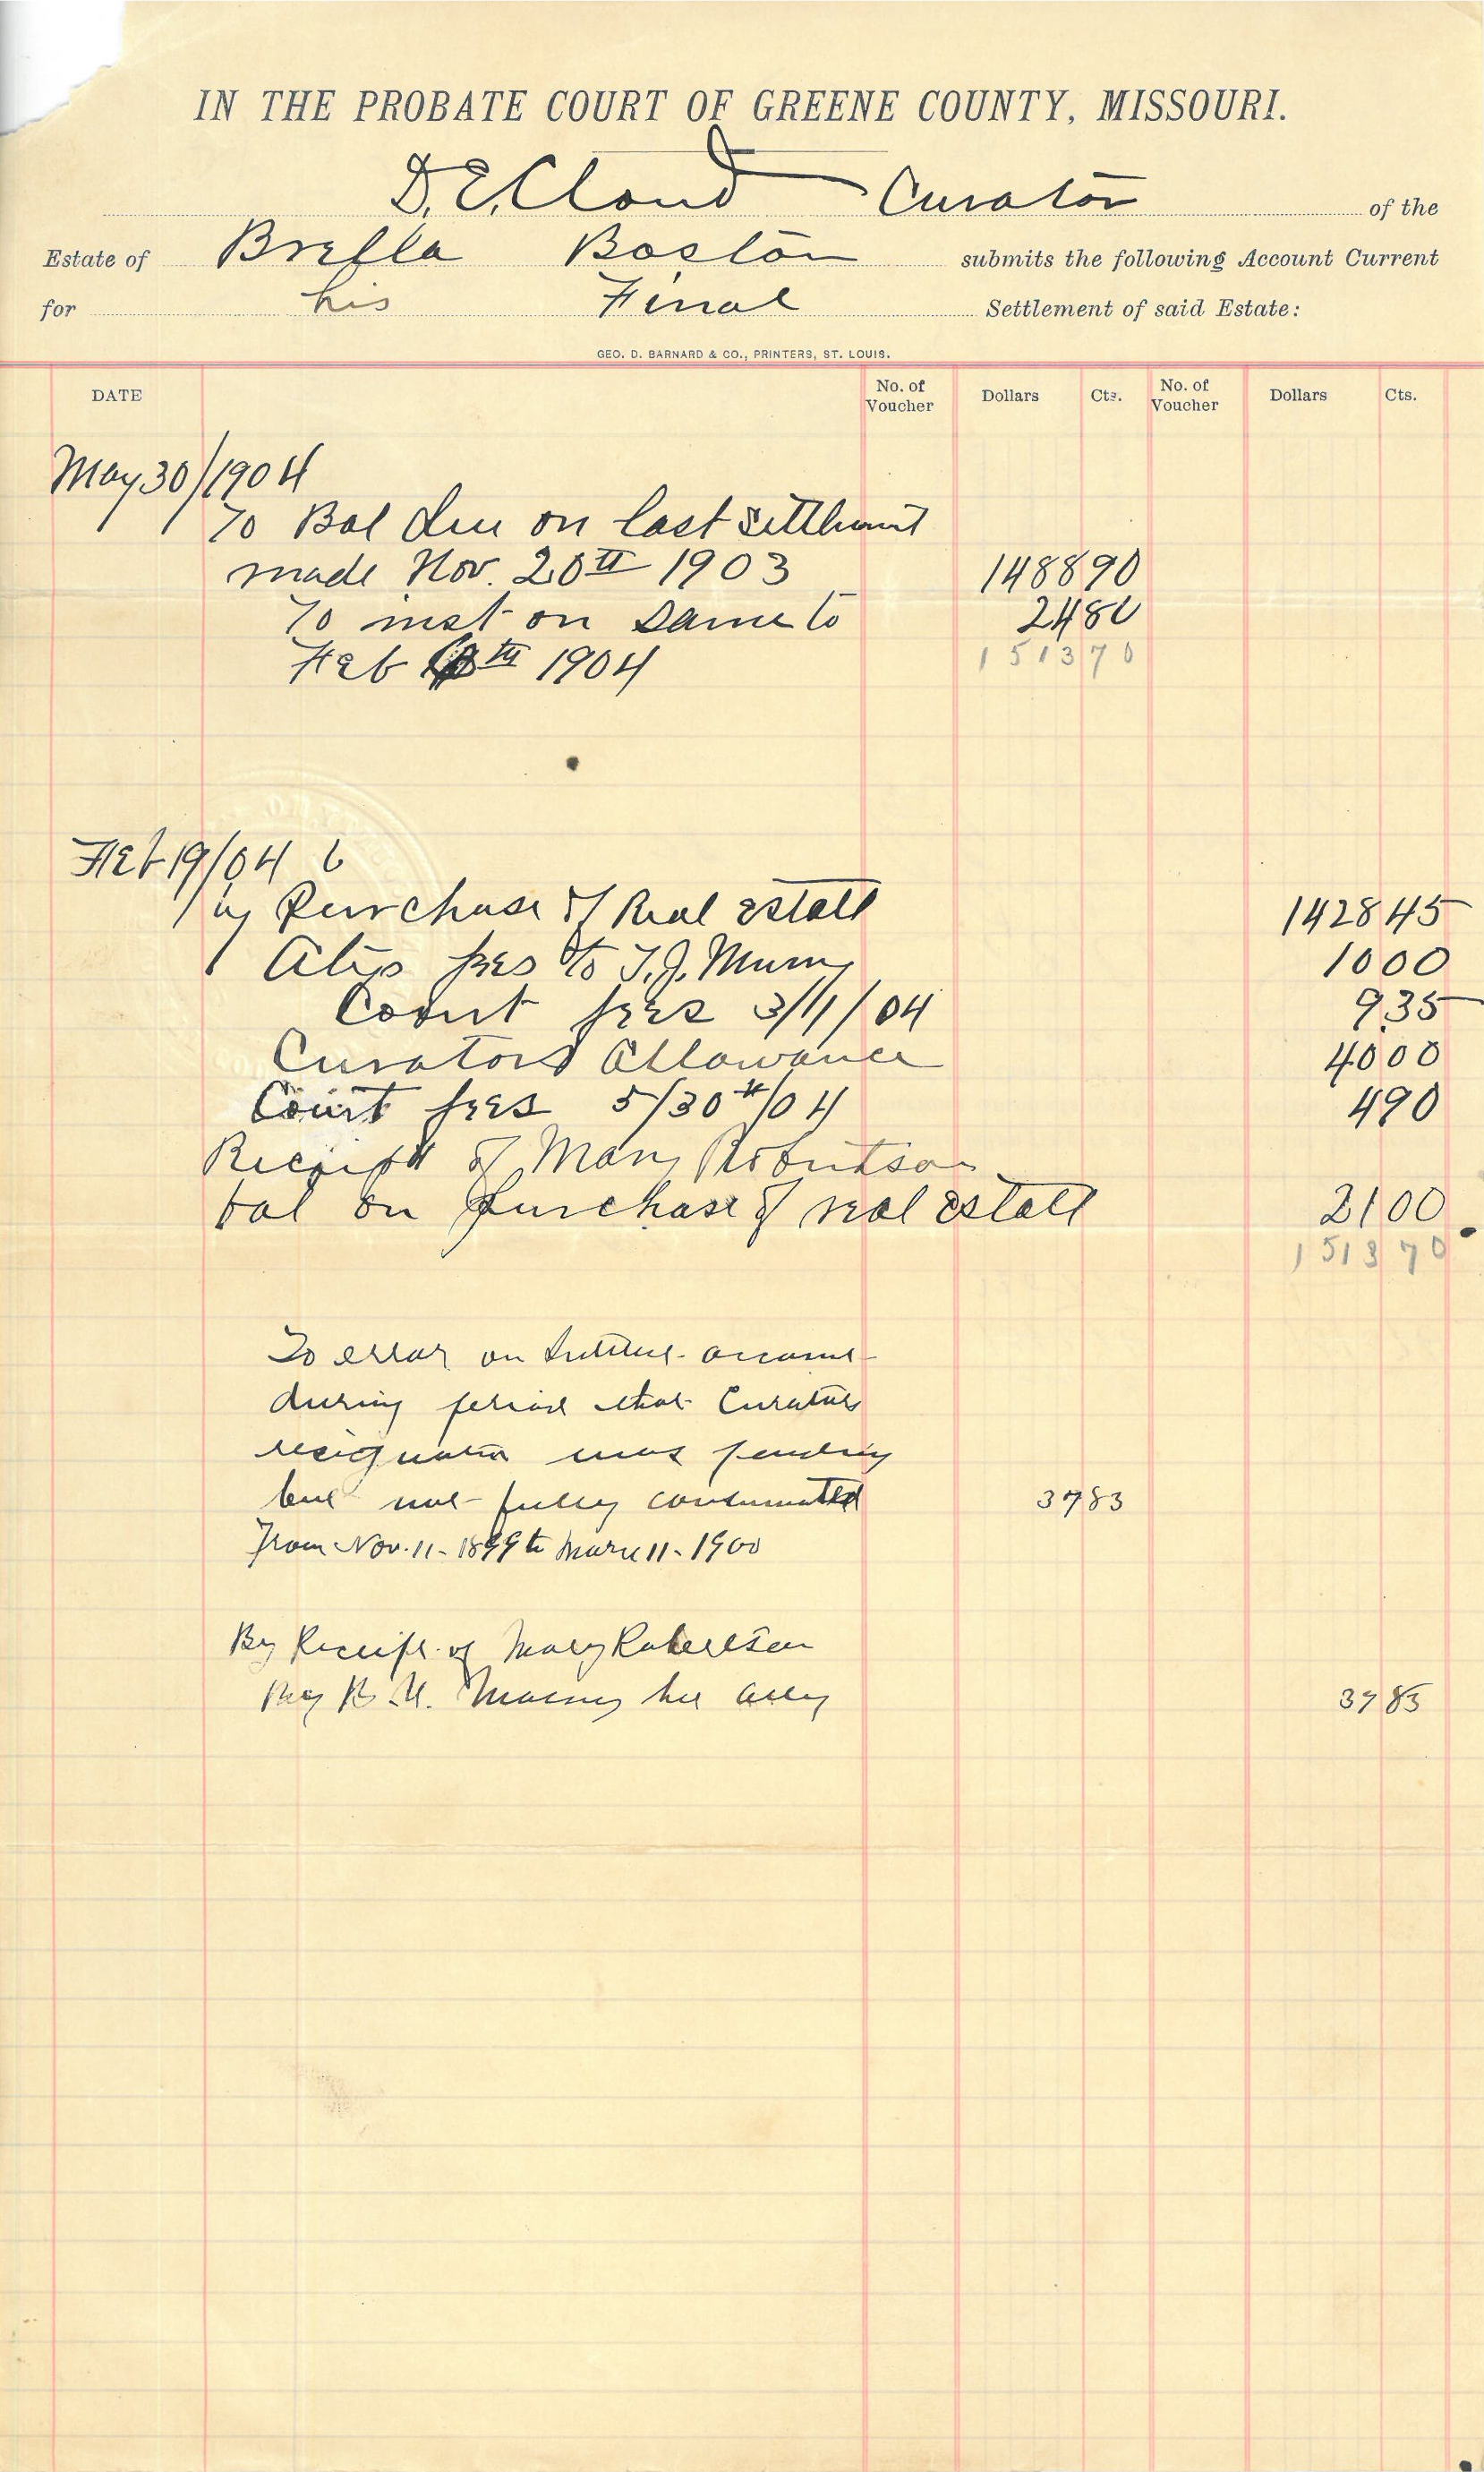 IN THE PROBATE COURT OF GREENE COUNTY, MISSOURI.
D. E. Cloud Curator of the
Estate of Brefla Boston submits the following Account Current
for his Final Settlement of said Estate:
GEO. D. BARNARD & CO., PRINTERS, ST. LOUIS.
DATE No. of Voucher Dollars Cts. No. of Voucher Dollars Cts.
May 30/1904
To Bal due on last settlement
made Nov. 20th 1903 1488 90
To inst on same to 24 80
Feb th 1904 1513 70
Feb 19/04
by Purchase of Real Estate 1428 45
Atys fees to T. J. Murry 10 00
Court fees 3/1/04 9.35
Curators Allowance 40 00
Court fees 5/30th/04 4 90
Receipt of Mary Robertson
bal on purchase of real estate 21 00
1513 70
To error on account
during period that Curators
resignation was pending
but not fully consummated 37 83
From Nov. 11 - 1899 to March 11 - 1900
By Receipt of Mary Robertson
By her atty 37 83